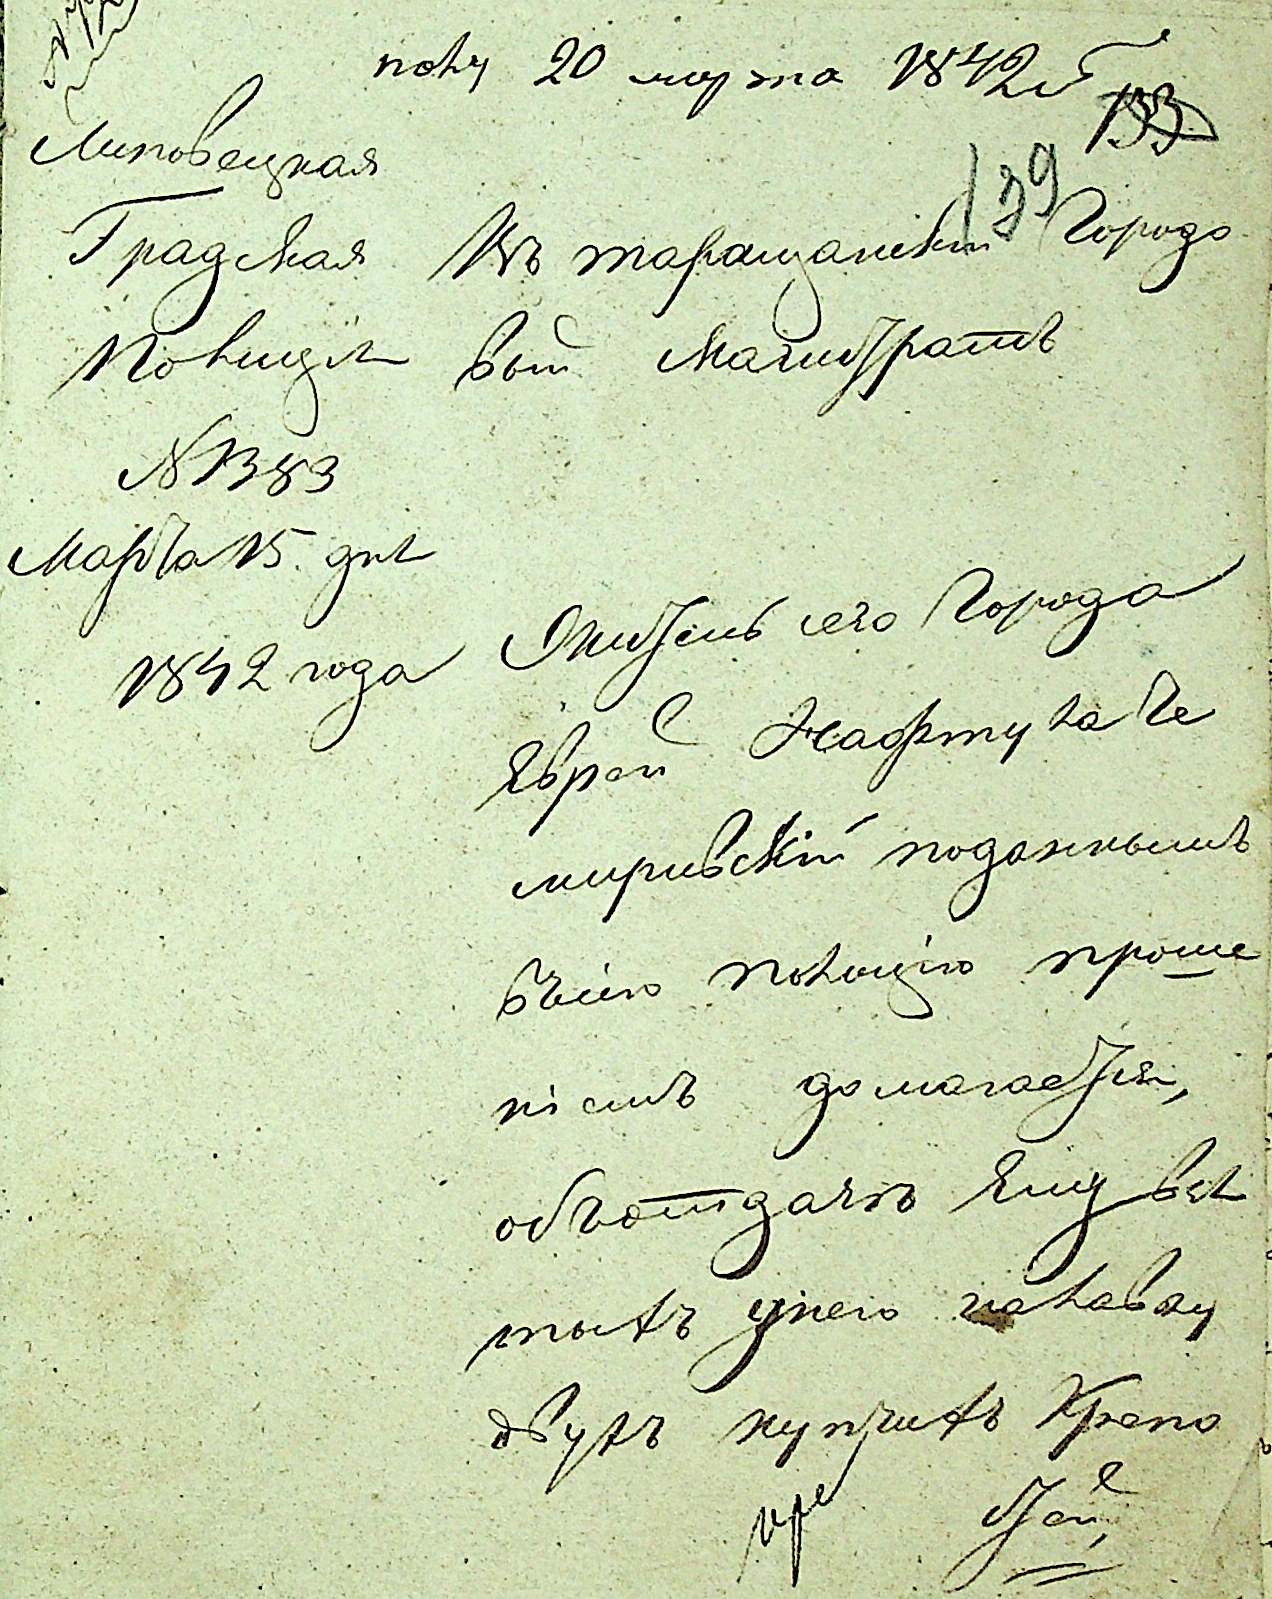 полу 20 марта 1842г
133
139
Липовецкая
Градская
Полиция
№ 1383
Марта 15. дня
1842 года
Въ таращанскій Городо
вый Магистратъ
Житель сего Города
Яврей Нафтула Че
мирисвскій поданнымъ
въсію полицію проше
ніемъ домагается,
объотдачъ Ему взя
тыхъ унего
двухъ купчихъ Крепо
стей,